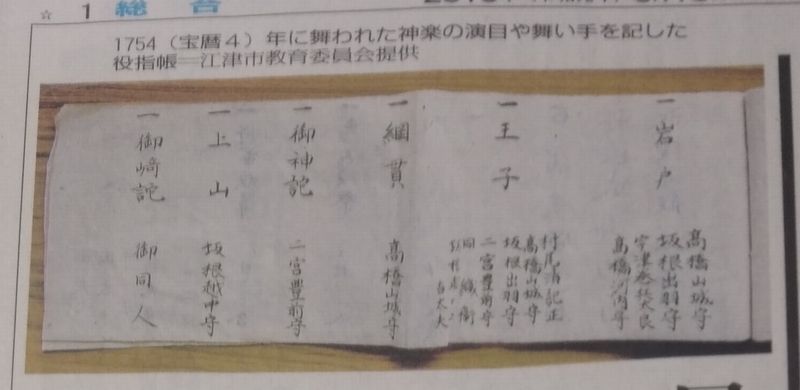 ☆ 1 総 合
1754（宝暦４）年に舞われた神楽の演目や舞い手を記した
役指帳＝江津市教育委員会提供
一 岩戸
高橋山城守
坂根出羽守
高橋河内守
一 王子
高橋山城守
坂根出羽守
二宮豊前守
一 綱貫
高橋山城守
一 御神託
二宮豊前守
一 上山
坂根越中守
一 御﨑託
御同人